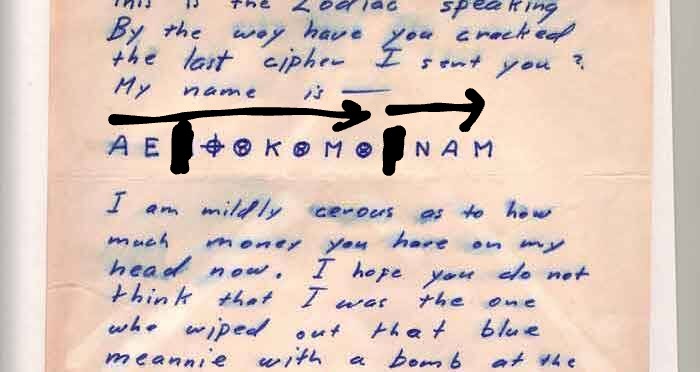 This is the Zodiac speaking
By the way have you cracked
the last cipher I sent you ?
My name is —
A E ⌖ ⊗ K ⊗ M ⊗ N A M
I am mildly cerous as to how
much money you have on my
head now. I hope you do not
think that I was the one
who wiped out that blue
meannie with a bomb at the